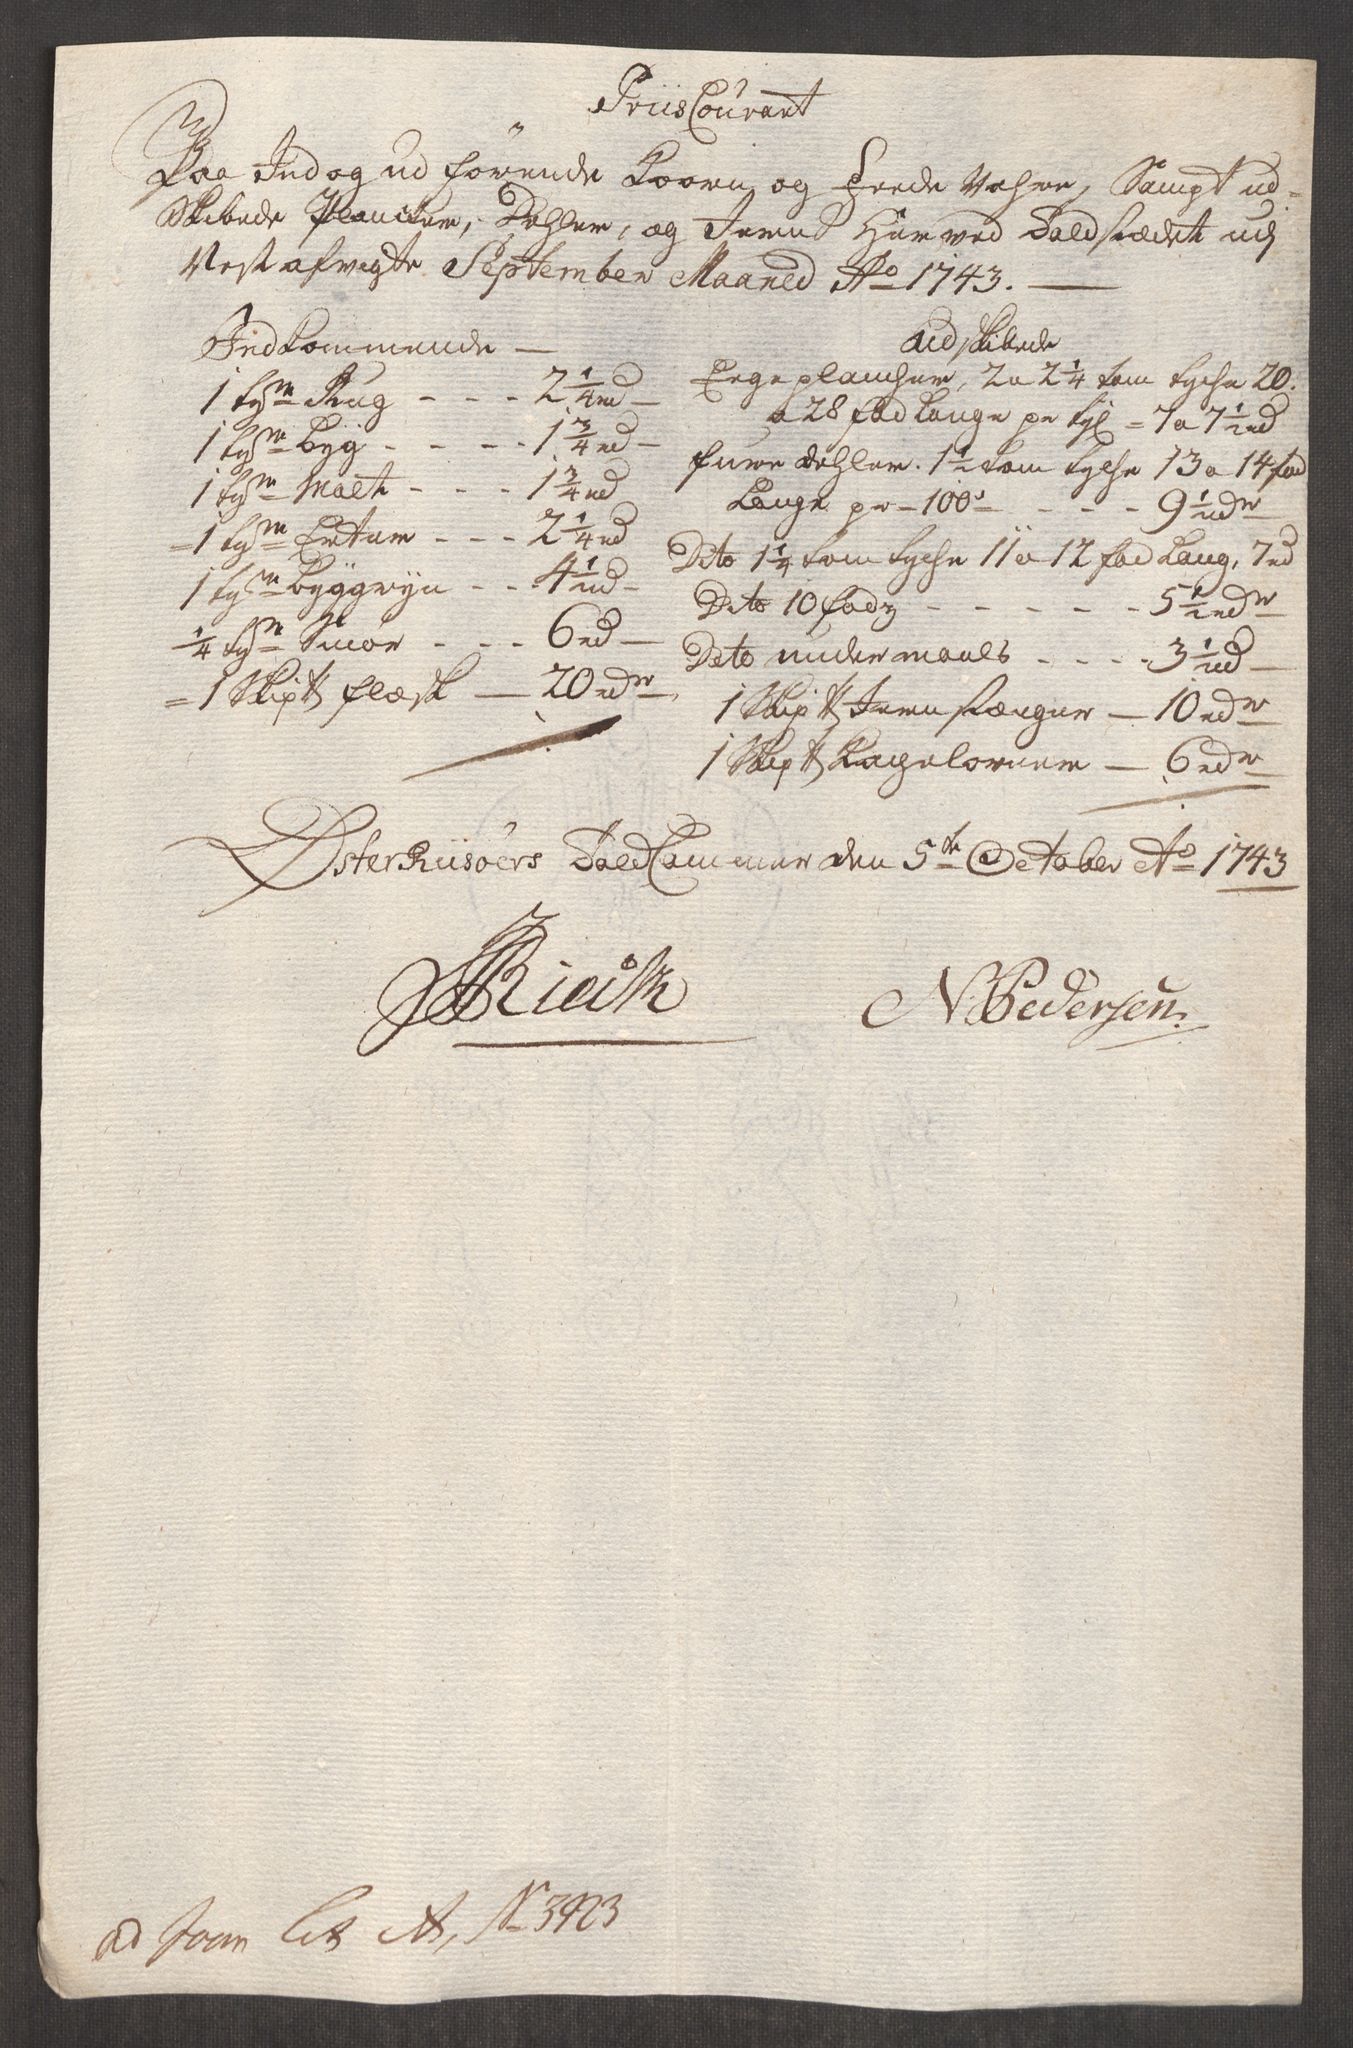 Priis Courant
Paa Ind og ud förende Koorn og Feede Vahre, Sampt ud-
Skibede Plancker, Dehler, og Jern Her ved Toldstædet udj
Nest afvigte September Maaned Ao 1743.
Indkommende
1 tgr Rug - - - 2 1/4 rd
1 tgr Byg - - - - 1 3/4 rd
1 tgr Malt - - - 1 3/4 rd
1 tgr Erter - - - 2 1/4 rd
1 tgr Byggryn - - 4 1/2 rd
1/4 tgr Smör - - - 6 rd
1 Skip℔ Flæsk - 20 rdr
udskibede
Eege plancher, 2 a 2 1/4 tom tyche 20.
a 28 fod Lange pr tyl = 7 a 7 1/2 rd
furre dehler. 1 1/2 tom tyche 13 a 14 fod
Lange pr 100 - - - 9 1/2 rdr
Dito 1 1/4 tom tyche 11 a 12 fod Lang, 7 rd
Dito 10 fods - - - - - 5 1/2 rdr
Dito under maals - - - - 3 1/2 rd
1 Skip℔ Jern stænger - 10 rdr
1 Skip℔ Kagelovner - 6 rdr
Øster Riisöers Told Cammer den 5te October Ao 1743
N Pedersen
ad Jour Lit A, No 3923